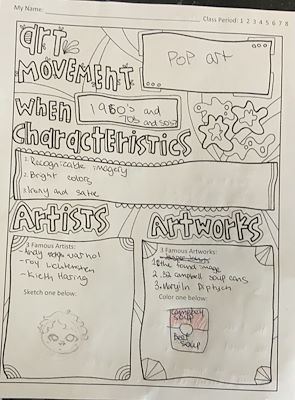 My Name:
Class Period: 1 2 3 4 5 6 7 8
art
MOVEMENT
Pop art
when
1960's and
70's and 50's
Characteristics
1. Recognizable imagery
2. Bright colors
3. Irony and satire
Artists
Artworks
3 Famous Artists:
- Andy Warhol
- roy lichtenstein
- Kieth Haring
Sketch one below:
3 Famous Artworks:
1. the found image
2. 32 campbell soup cans
3. Marylin Diptych
Color one below:
Campbell
Soup
Beef
Soup